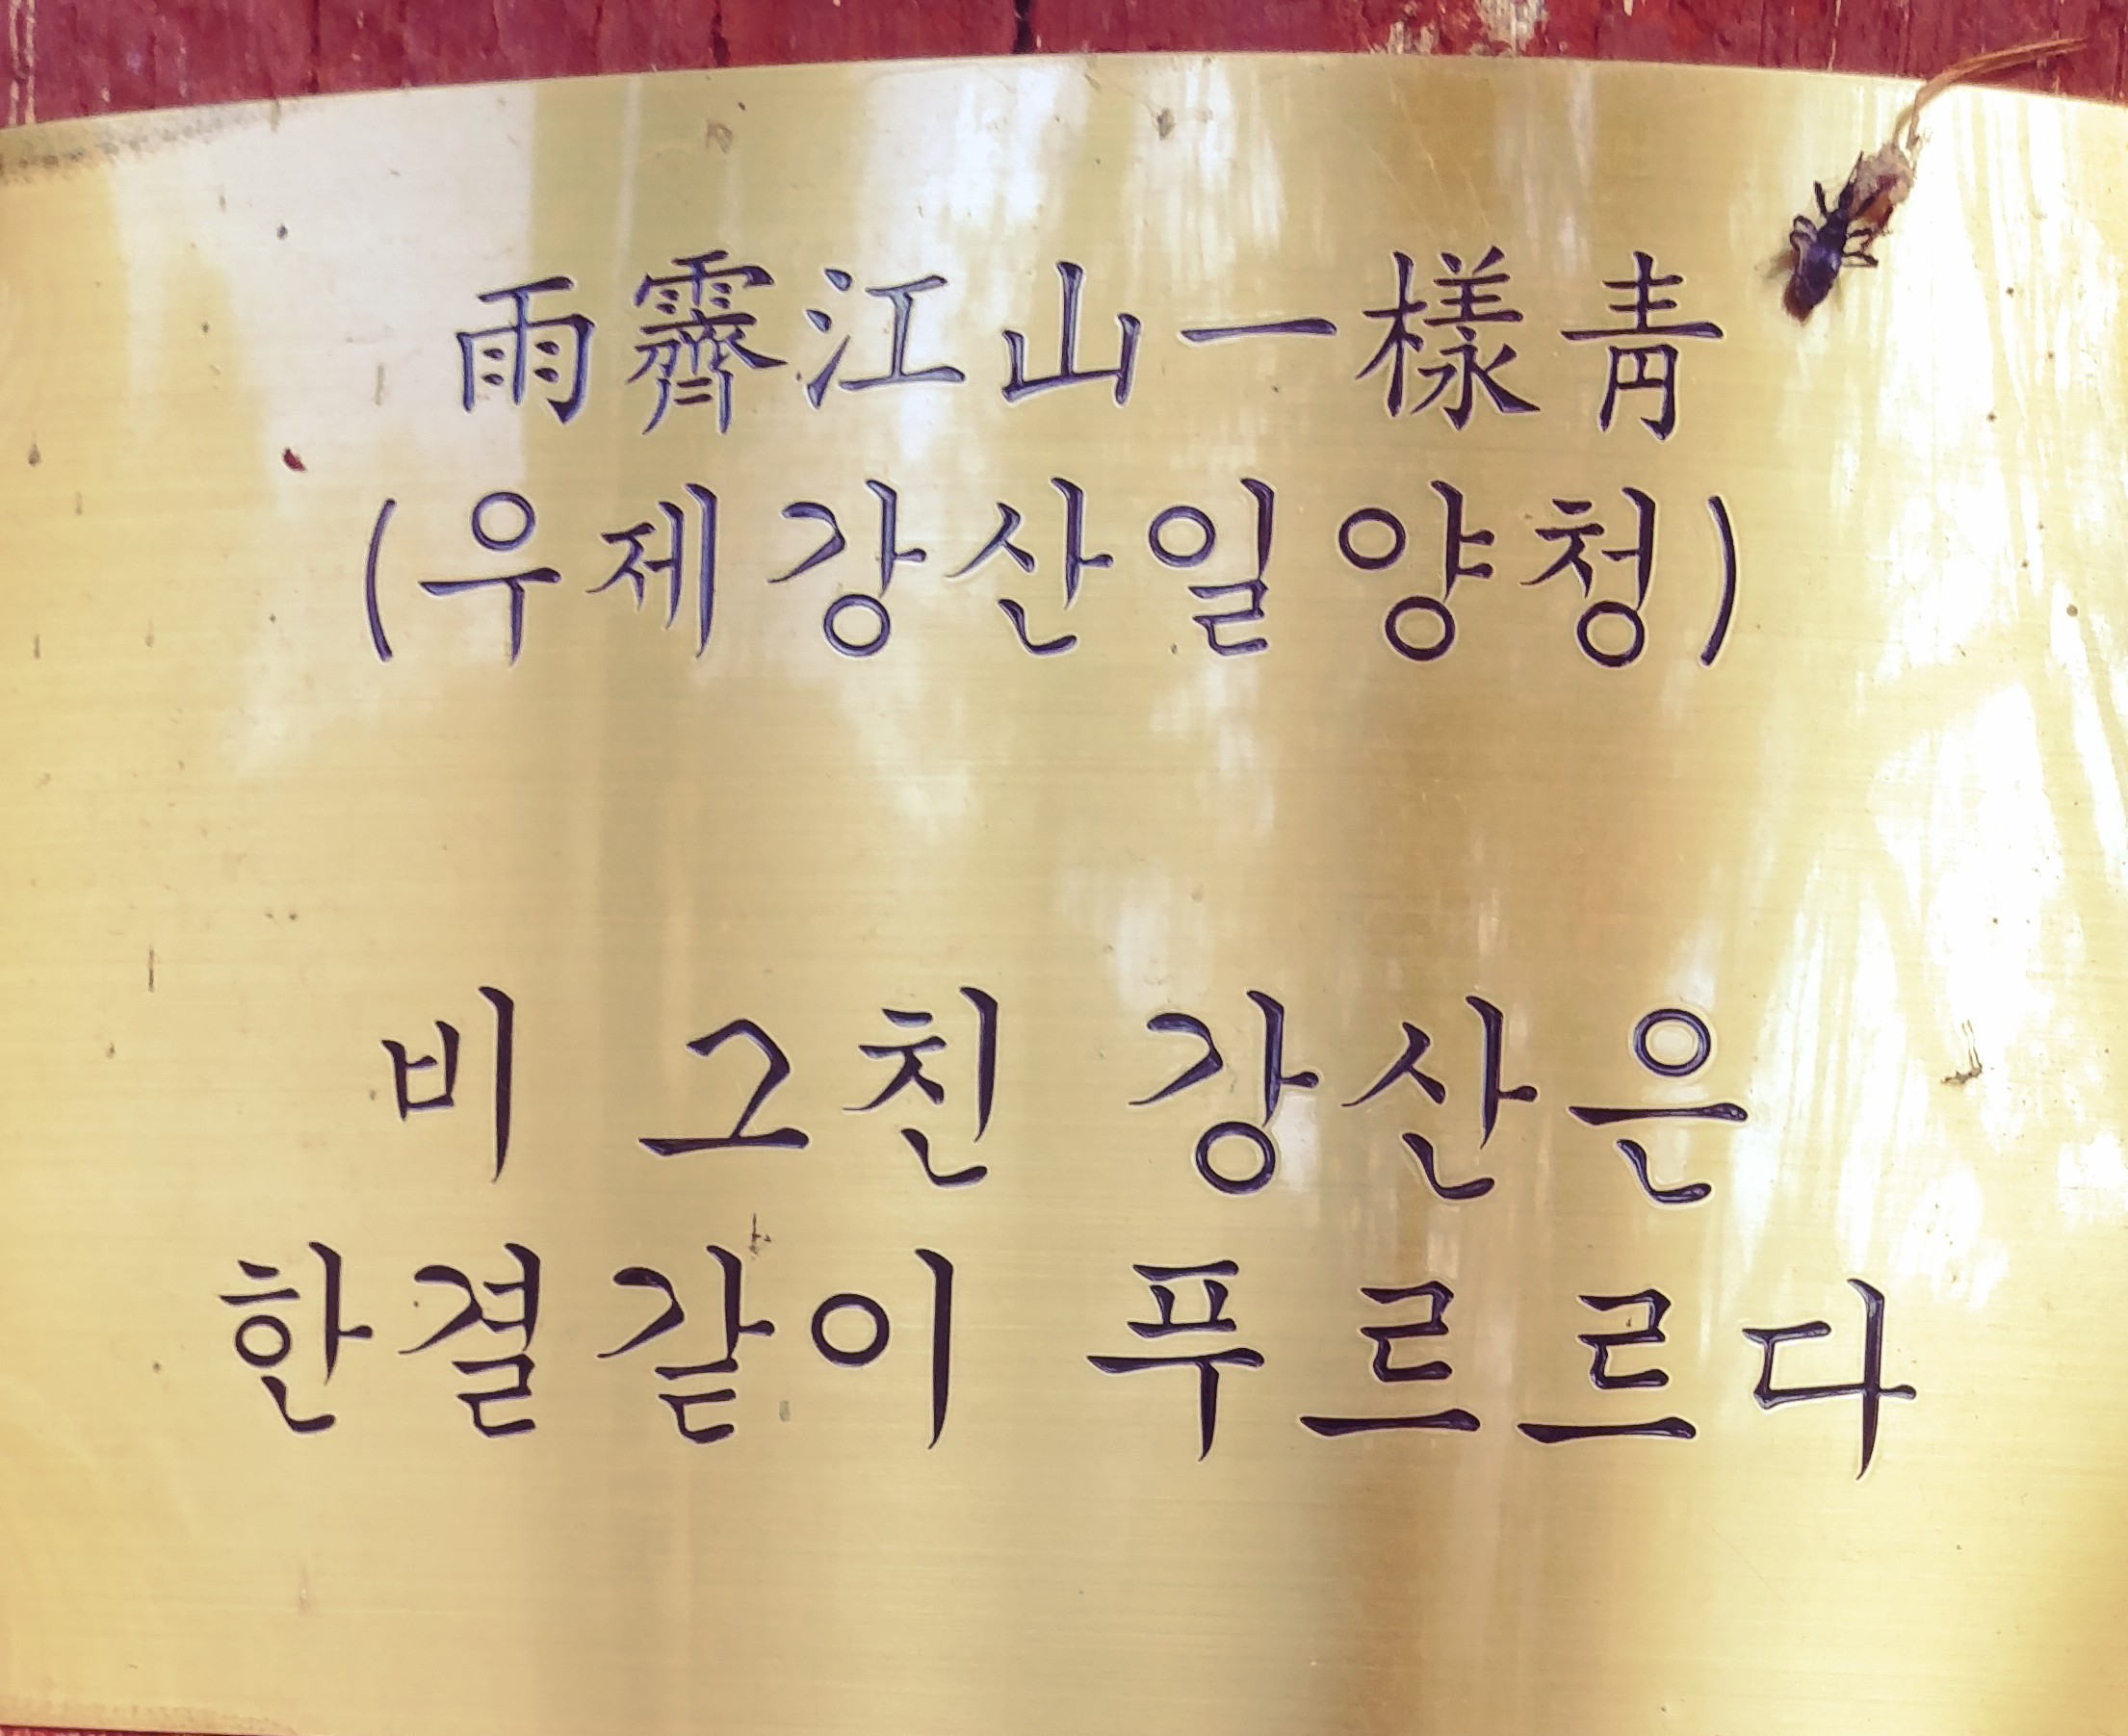 雨霽江山一樣靑
(우제강산일양청)
비 그친 강산은
한결같이 푸르르다